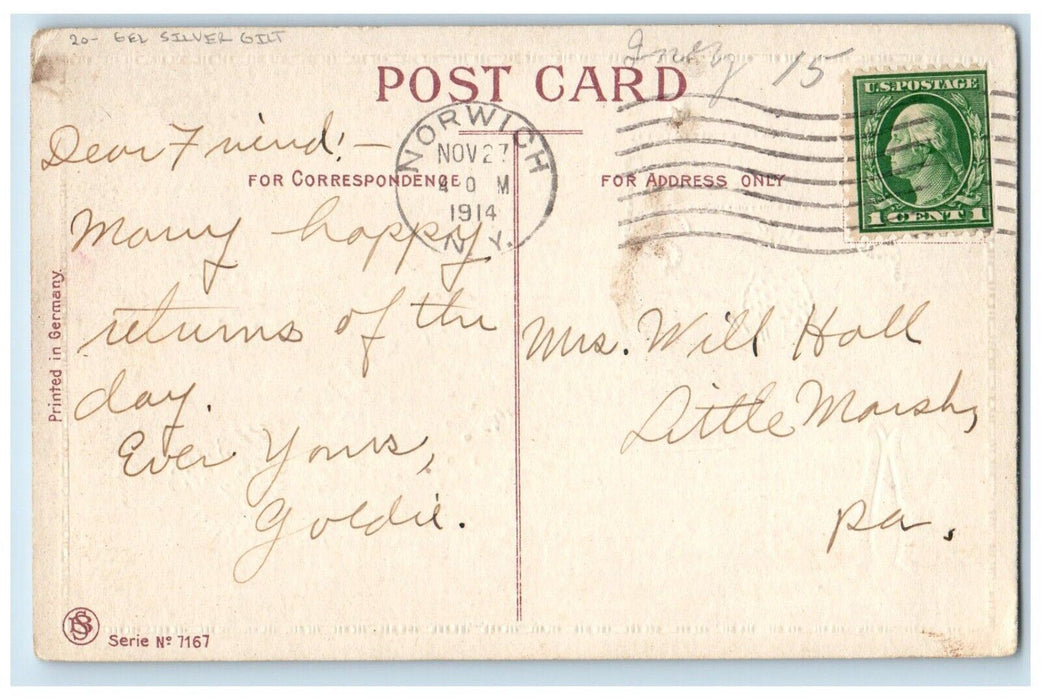 20- GEL SILVER GILT
15
POST CARD
U.S. POSTAGE
1 CENT 1
NORWICH
NOV 27
4 0 M
1914
N.Y.
FOR CORRESPONDENCE
FOR ADDRESS ONLY
Dear Friend! —
Many happy
returns of the
day.
Ever Yours,
Goldie.
Mrs. Will Holl
Little Marsh,
Pa.
Printed in Germany.
Serie No 7167